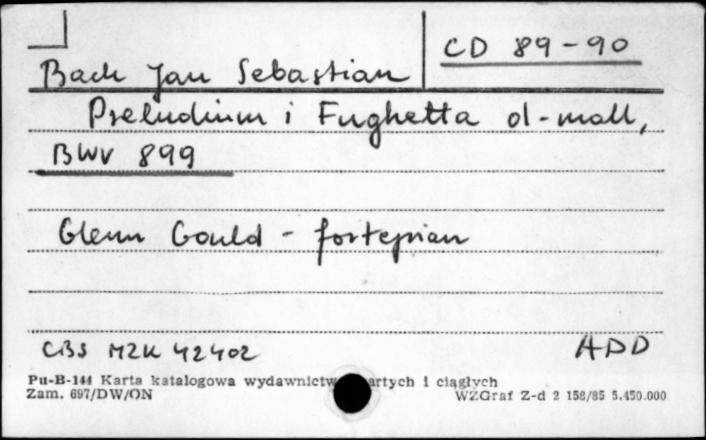 CD 89-90
Bach Jan Sebastian
Preludium i Fughetta d-moll,
BWV 899
Glenn Gould - fortepian
CBS M2K 42402 ADD
Pu-B-144 Karta katalogowa wydawnictw artych i ciągłych
Zam. 697/DW/ON WZGraf Z-d 2 158/85 5.450.000